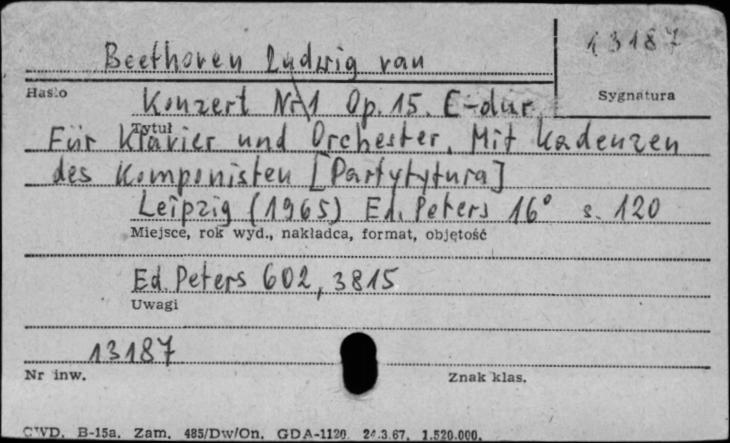 13187
Beethoven Ludwig van
Hasło
Sygnatura
Konzert Nr 1 Op. 15. E-dur
Tytuł
Für Klavier und Orchester. Mit Kadenzen
des Komponisten [Partytytura]
Leipzig (1965) Ed. Peters 16° s. 120
Miejsce, rok wyd., nakładca, format, objętość
Ed. Peters 602, 3815
Uwagi
13187
Nr inw.
Znak klas.
CWD. B-15a. Zam. 485/Dw/On. GDA-1120. 24.3.67. 1.520.000.